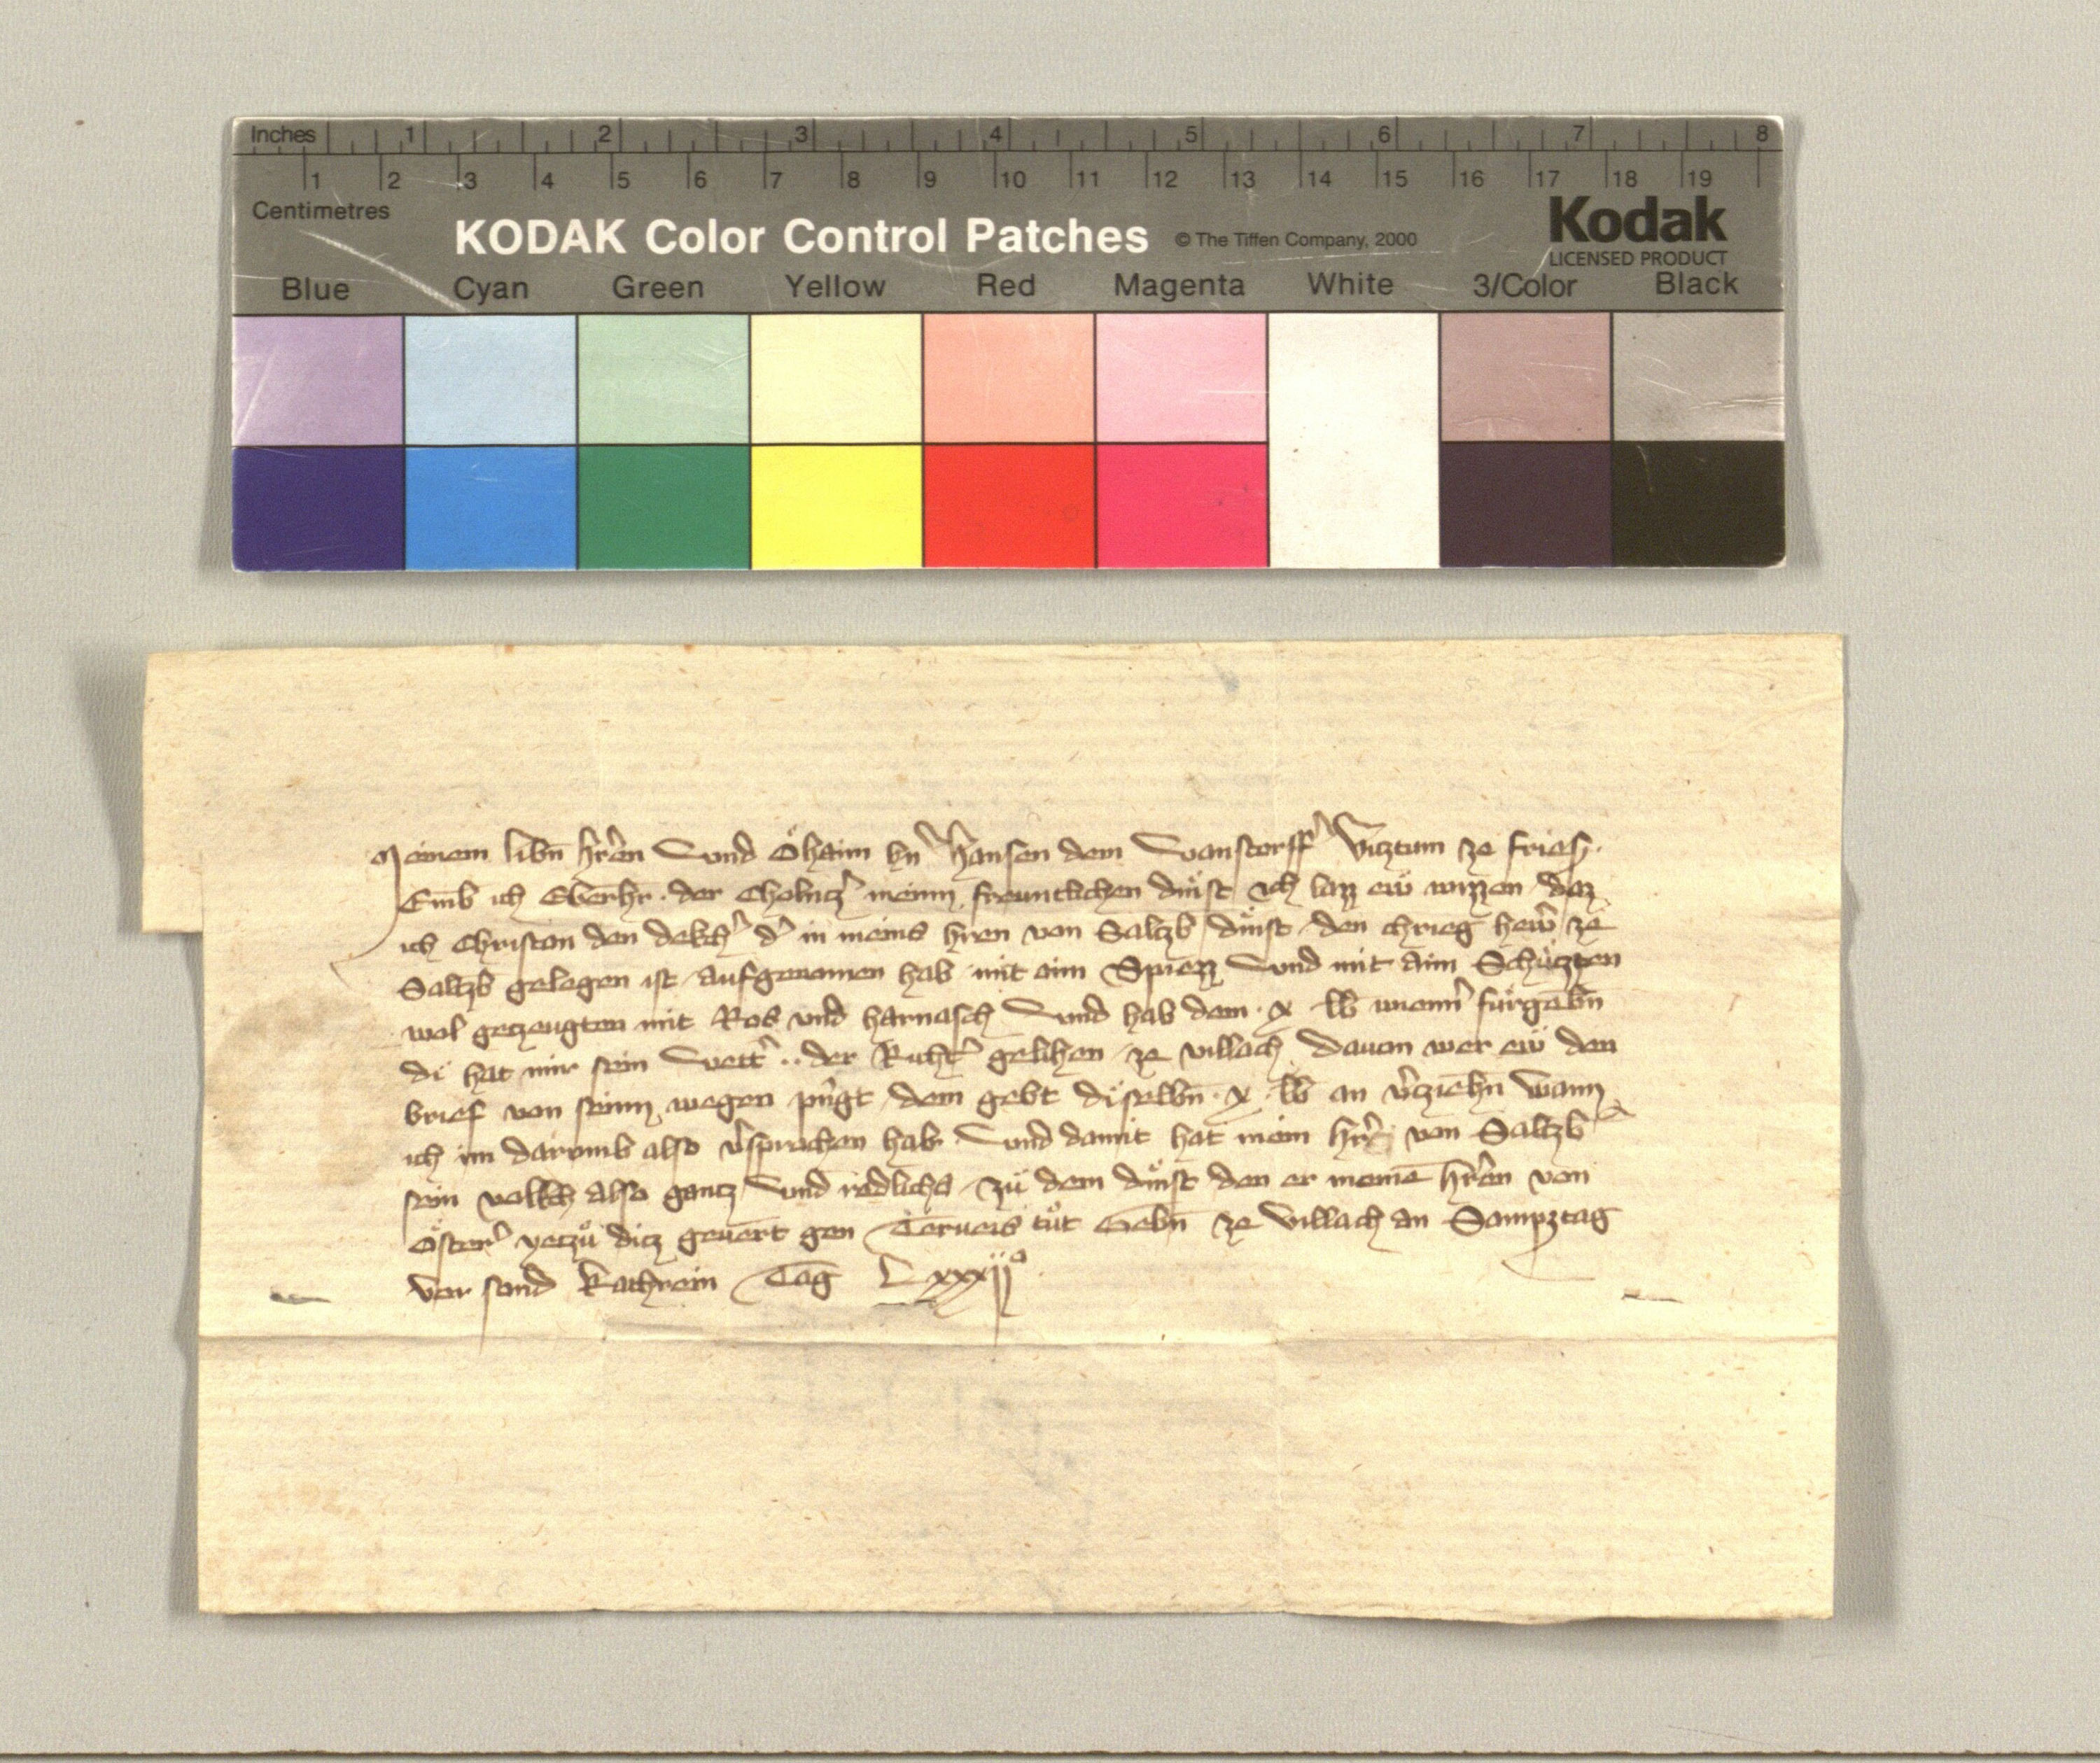 Inches 1 2 3 4 5 6 7 8
1 2 3 4 5 6 7 8 9 10 11 12 13 14 15 16 17 18 19
Centimetres
KODAK Color Control Patches © The Tiffen Company, 2000 Kodak
LICENSED PRODUCT
Blue Cyan Green Yellow Red Magenta White 3/Color Black
Meinem libn̄ hr̄en Vnd Öhaim hn̄ Hansen dem Vanstorff Viztum ze Fries.
Emb ich Eberhr. der meinn freuntlichen dinst ich lazz ew wizzen daz
ich Christan den dekch in meins hren von Saltzb dinst den chrieg hewr ze
Saltzb gelegen ist aufgenomen hab mit aim Spiezz Vnd mit aim Schützten
wol getzeugten mit Ros vnd harnasch Vnd hab dem . x . lb wienn fürgebn̄
di hat mir sein Vett .. der Richt gelihen ze villach Dauon wer ew den
brief von seinn wegen pringt dem gebt diselbn̄ . x . lb an vcziehn Wann
ich im darumb also vsprochen hab Vnd damit hat mein Hr von Saltzb
sein volkch also gantz Vnd redlichs zu dem dinst den er meinē hr̄en von
Öster yetzu ditz geuert gen Teruis tut Gebn̄ ze Villach an Sampztag
vor sand Kathrein Tag Lxxxijo